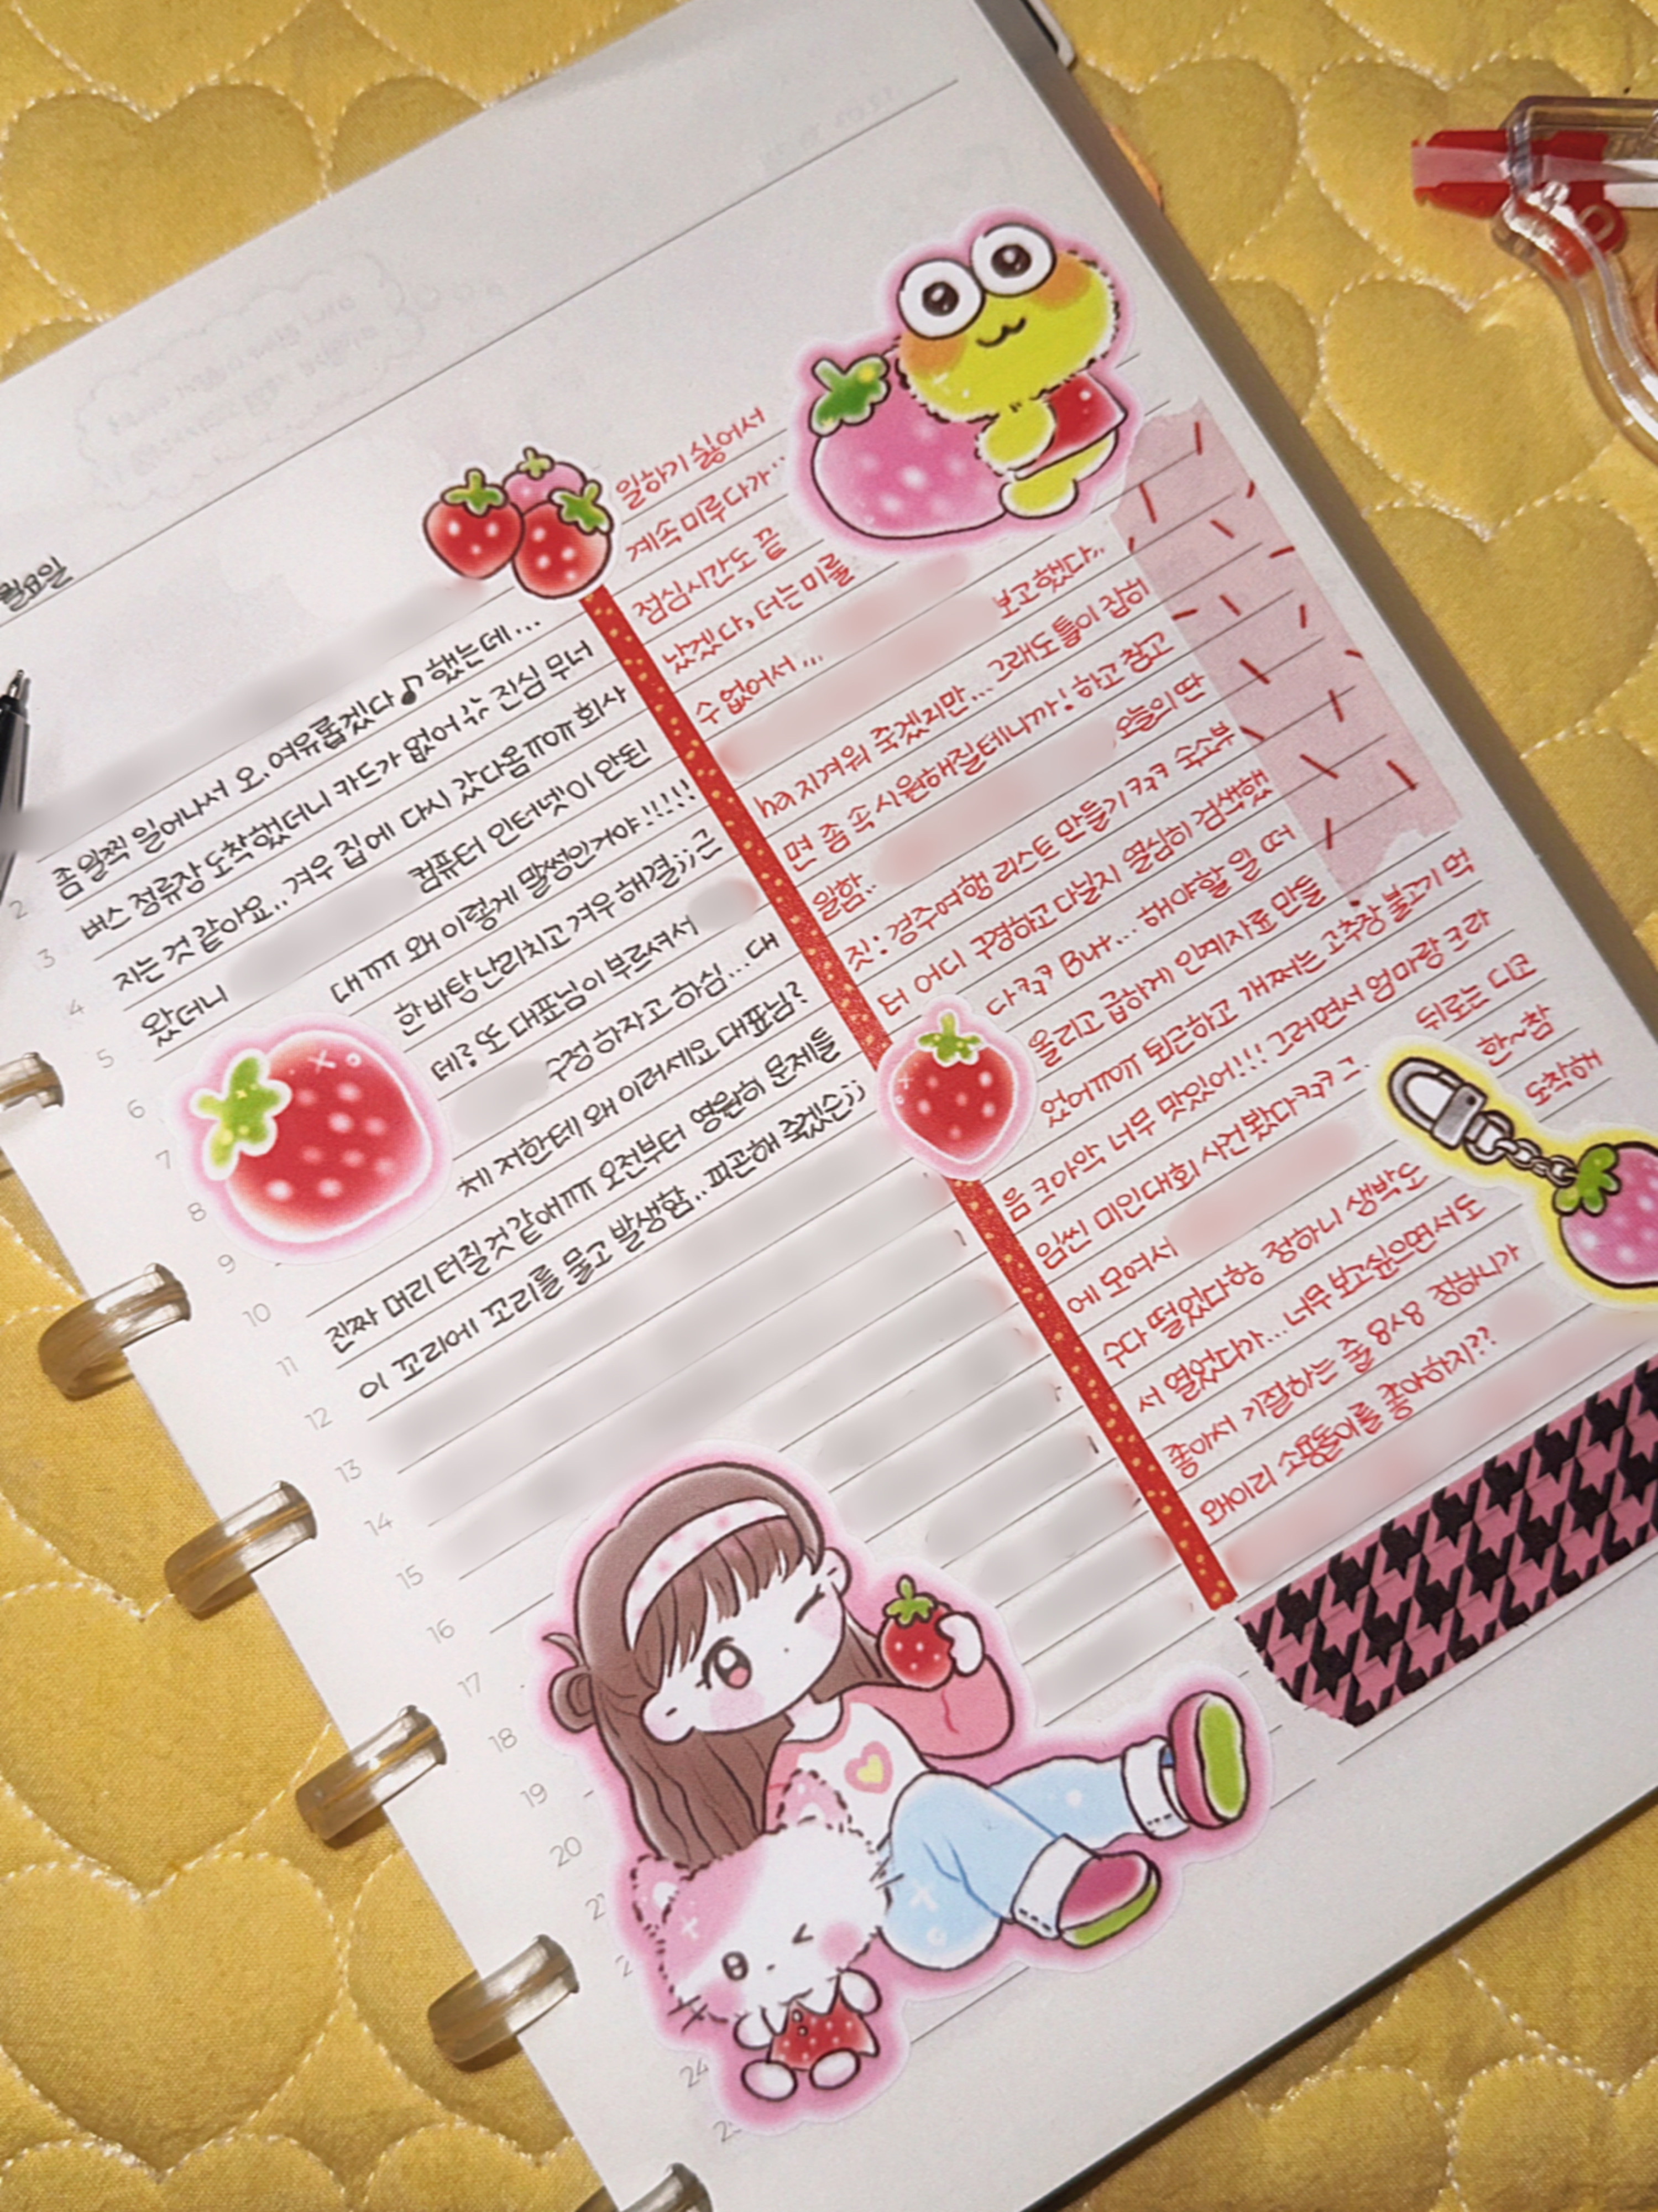 월요일
좀 일찍 일어나서 오, 여유롭겠다♪ 했는데...
버스 정류장 도착했더니 카드가 없어 진심 무너
지는 것 같아요.. 겨우 집에 다시 갔다옴ㅠㅠ 회사
왔더니 컴퓨터 인터넷이 안된
대ㅠㅠ 왜 이렇게 말썽인거야!!!!!
한바탕 난리치고 겨우 해결;; 근
데? 또 대표님이 부르셔서
수정 하자고 하심... 대
체 저한테 왜 이러세요 대표님?
진짜 머리 터질것같애ㅠㅠ 오전부터 영원히 문제들
이 꼬리에 꼬리를 물고 발생함.. 피곤해 죽겠슨;;
일하기 싫어서
계속 미루다가..
점심시간도 끝
났겠다, 더는 미룰
수 없어서...
보고했다..
ha 지겨워 죽겠지만... 그래도 틀이 잡히
면 좀 속 시원해질테니까! 하고 참고
일함.. 오늘의 딴
짓: 경주여행 리스트 만들기 ㅋㅋ 숙소부
터 어디 구경하고 다닐지 열심히 검색했
다ㅋㅋ But... 해야할 일 떠
올리고 급하게 인폐자료 만들
었어ㅠㅠ 퇴근하고 개쩌는 고추장 불고기 먹
음 크아악 너무 맛있어!!! 그러면서 엄마랑 크라
임씬 미인대회 사건 봤다ㅋㅋ 그.. 뒤로는 디코
에 모여서 한~참
수다 떨었다항 정하니 생박도 도착해
서 열었다가... 너무 보고싶으면서도
좋아서 기절하는 줄 8ㅅ8 정하니가
왜이리 소용돌이를 좋아하지??
2
3
4
5
6
7
8
9
10
11
12
13
14
15
16
17
18
19
20
24